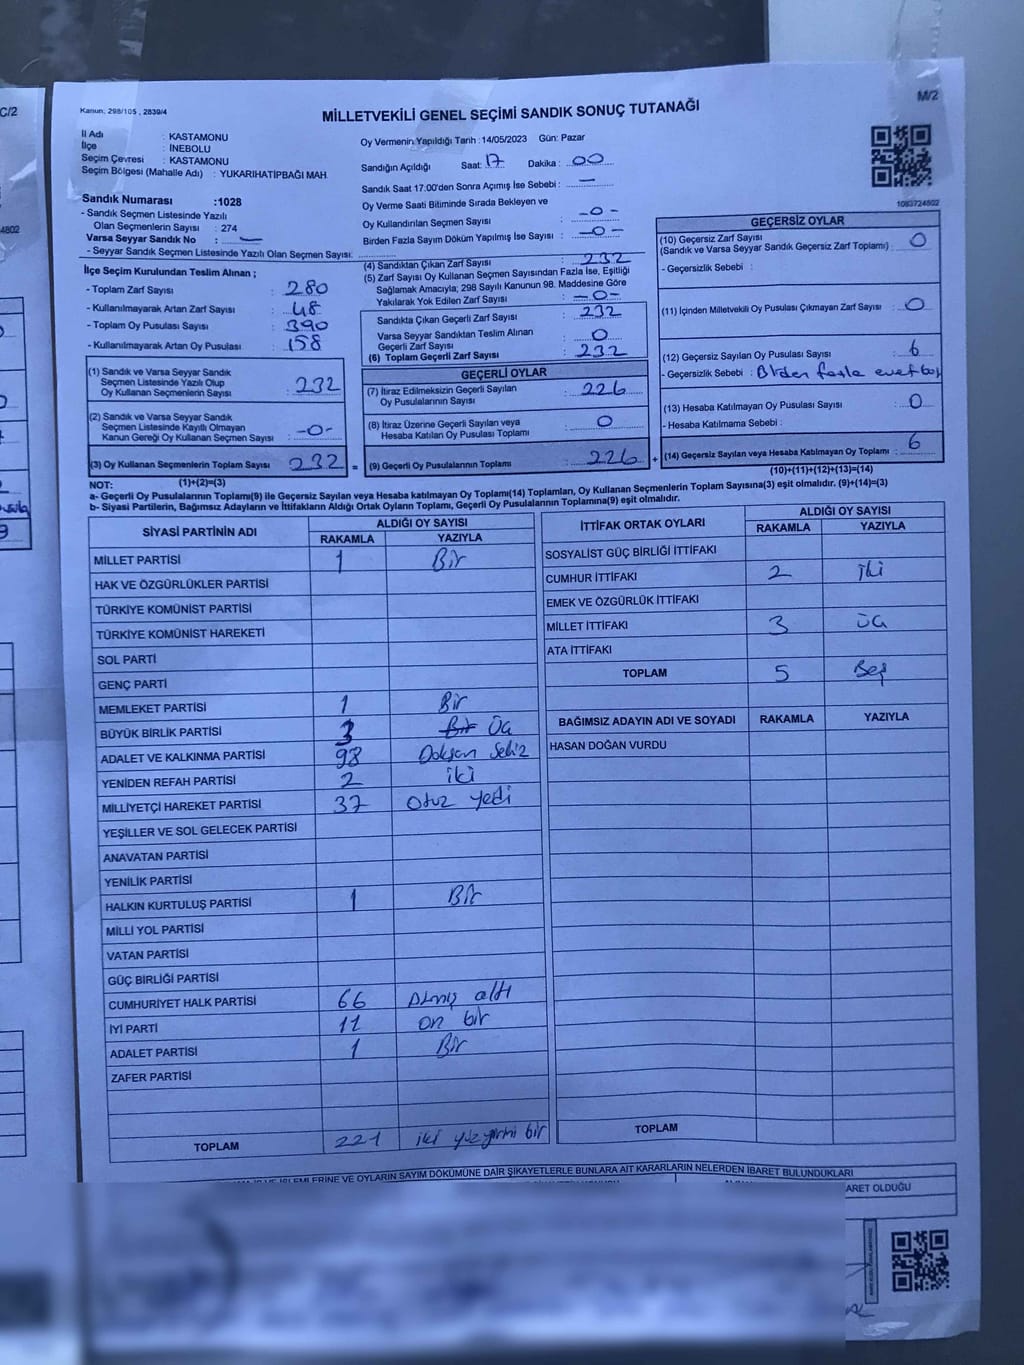 C/2
4802
Kanun: 298/105 , 2839/4
M/2
MİLLETVEKİLİ GENEL SEÇİMİ SANDIK SONUÇ TUTANAĞI
İl Adı : KASTAMONU
İlçe : İNEBOLU
Seçim Çevresi : KASTAMONU
Seçim Bölgesi (Mahalle Adı) : YUKARIHATİPBAĞI MAH.
Sandık Numarası :1028
- Sandık Seçmen Listesinde Yazılı
Olan Seçmenlerin Sayısı : 274
Varsa Seyyar Sandık No : —
- Seyyar Sandık Seçmen Listesinde Yazılı Olan Seçmen Sayısı:
Oy Vermenin Yapıldığı Tarih : 14/05/2023 Gün: Pazar
Sandığın Açıldığı Saat: 17 Dakika : 00
Sandık Saat 17.00'den Sonra Açımış İse Sebebi : —
Oy Verme Saati Bitiminde Sırada Bekleyen ve
Oy Kullandırılan Seçmen Sayısı : -0-
Birden Fazla Sayım Döküm Yapılmış İse Sayısı : -0-
1083724802
İlçe Seçim Kurulundan Teslim Alınan ;
- Toplam Zarf Sayısı : 280
- Kullanılmayarak Artan Zarf Sayısı : 48
- Toplam Oy Pusulası Sayısı : 390
- Kullanılmayarak Artan Oy Pusulası : 158
(1) Sandık ve Varsa Seyyar Sandık
Seçmen Listesinde Yazılı Olup
Oy Kullanan Seçmenlerin Sayısı : 232
(2) Sandık ve Varsa Seyyar Sandık
Seçmen Listesinde Kayıtlı Olmayan
Kanun Gereği Oy Kullanan Seçmen Sayısı : -0-
(3) Oy Kullanan Seçmenlerin Toplam Sayısı : 232
(1)+(2)=(3)
(4) Sandıktan Çıkan Zarf Sayısı : 232
(5) Zarf Sayısı Oy Kullanan Seçmen Sayısından Fazla İse, Eşitliği
Sağlamak Amacıyla; 298 Sayılı Kanunun 98. Maddesine Göre
Yakılarak Yok Edilen Zarf Sayısı : -0-
Sandıkta Çıkan Geçerli Zarf Sayısı : 232
Varsa Seyyar Sandıktan Teslim Alınan
Geçerli Zarf Sayısı : 0
(6) Toplam Geçerli Zarf Sayısı : 232
GEÇERLİ OYLAR
(7) İtiraz Edilmeksizin Geçerli Sayılan
Oy Pusulalarının Sayısı : 226
(8) İtiraz Üzerine Geçerli Sayılan veya
Hesaba Katılan Oy Pusulası Toplamı : 0
= (9) Geçerli Oy Pusulalarının Toplamı : 226 +
GEÇERSİZ OYLAR
(10) Geçersiz Zarf Sayısı
(Sandık ve Varsa Seyyar Sandık Geçersiz Zarf Toplamı) : 0
- Geçersizlik Sebebi :
(11) İçinden Milletvekili Oy Pusulası Çıkmayan Zarf Sayısı : 0
(12) Geçersiz Sayılan Oy Pusulası Sayısı : 6
- Geçersizlik Sebebi : Birden fazla evet
(13) Hesaba Katılmayan Oy Pusulası Sayısı : 0
- Hesaba Katılmama Sebebi :
(14) Geçersiz Sayılan veya Hesaba Katılmayan Oy Toplamı : 6
(10)+(11)+(12)+(13)=(14)
NOT:
a- Geçerli Oy Pusulalarının Toplamı(9) ile Geçersiz Sayılan veya Hesaba katılmayan Oy Toplamı(14) Toplamları, Oy Kullanan Seçmenlerin Toplam Sayısına(3) eşit olmalıdır. (9)+(14)=(3)
b- Siyasi Partilerin, Bağımsız Adayların ve İttifakların Aldığı Ortak Oyların Toplamı, Geçerli Oy Pusulalarının Toplamına(9) eşit olmalıdır.
SİYASİ PARTİNİN ADI ALDIĞI OY SAYISI
RAKAMLA YAZIYLA
MİLLET PARTİSİ 1 Bir
HAK VE ÖZGÜRLÜKLER PARTİSİ
TÜRKİYE KOMÜNİST PARTİSİ
TÜRKİYE KOMÜNİST HAREKETİ
SOL PARTİ
GENÇ PARTİ
MEMLEKET PARTİSİ 1 Bir
BÜYÜK BİRLİK PARTİSİ 3 Bir Üç
ADALET VE KALKINMA PARTİSİ 98 Doksan Sekiz
YENİDEN REFAH PARTİSİ 2 iki
MİLLİYETÇİ HAREKET PARTİSİ 37 Otuz yedi
YEŞİLLER VE SOL GELECEK PARTİSİ
ANAVATAN PARTİSİ
YENİLİK PARTİSİ
HALKIN KURTULUŞ PARTİSİ 1 Bir
MİLLİ YOL PARTİSİ
VATAN PARTİSİ
GÜÇ BİRLİĞİ PARTİSİ
CUMHURİYET HALK PARTİSİ 66 Atmış altı
İYİ PARTİ 11 on bir
ADALET PARTİSİ 1 Bir
ZAFER PARTİSİ
TOPLAM 221 iki yüz yirmi bir
İTTİFAK ORTAK OYLARI ALDIĞI OY SAYISI
RAKAMLA YAZIYLA
SOSYALİST GÜÇ BİRLİĞİ İTTİFAKI
CUMHUR İTTİFAKI 2 iki
EMEK VE ÖZGÜRLÜK İTTİFAKI
MİLLET İTTİFAKI 3 üç
ATA İTTİFAKI
TOPLAM 5 Beş
BAĞIMSIZ ADAYIN ADI VE SOYADI RAKAMLA YAZIYLA
HASAN DOĞAN VURDU
TOPLAM
İŞLEMLERİNE VE OYLARIN SAYIM DÖKÜMÜNE DAİR ŞİKAYETLERLE BUNLARA AİT KARARLARIN NELERDEN İBARET BULUNDUKLARI
ARET OLDUĞU